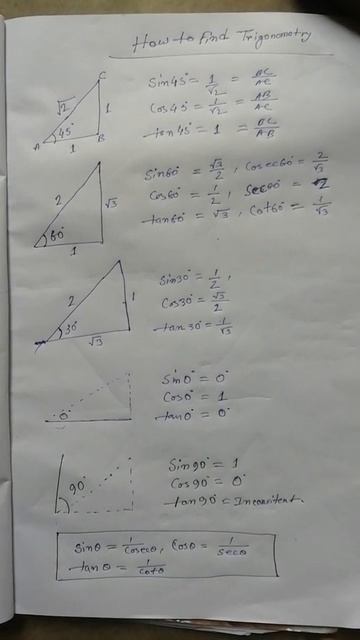 How to Find Trigonometry
C
√2
1
45°
A
1
B
Sin45° = 1/√2 = BC/AC
Cos45° = 1/√2 = AB/AC
tan45° = 1 = BC/AB
2
√3
60°
1
Sin60° = √3/2, Cosec60° = 2/√3
Cos60° = 1/2, Sec60° = 2
tan60° = √3, Cot60° = 1/√3
2
1
30°
√3
Sin30° = 1/2,
Cos30° = √3/2
tan30° = 1/√3
0°
Sin0° = 0°
Cos0° = 1
tan0° = 0°
90°
Sin90° = 1
Cos90° = 0°
tan90° = Inconsitent.
Sinθ = 1/Cosecθ, Cosθ = 1/Secθ
tanθ = 1/Cotθ